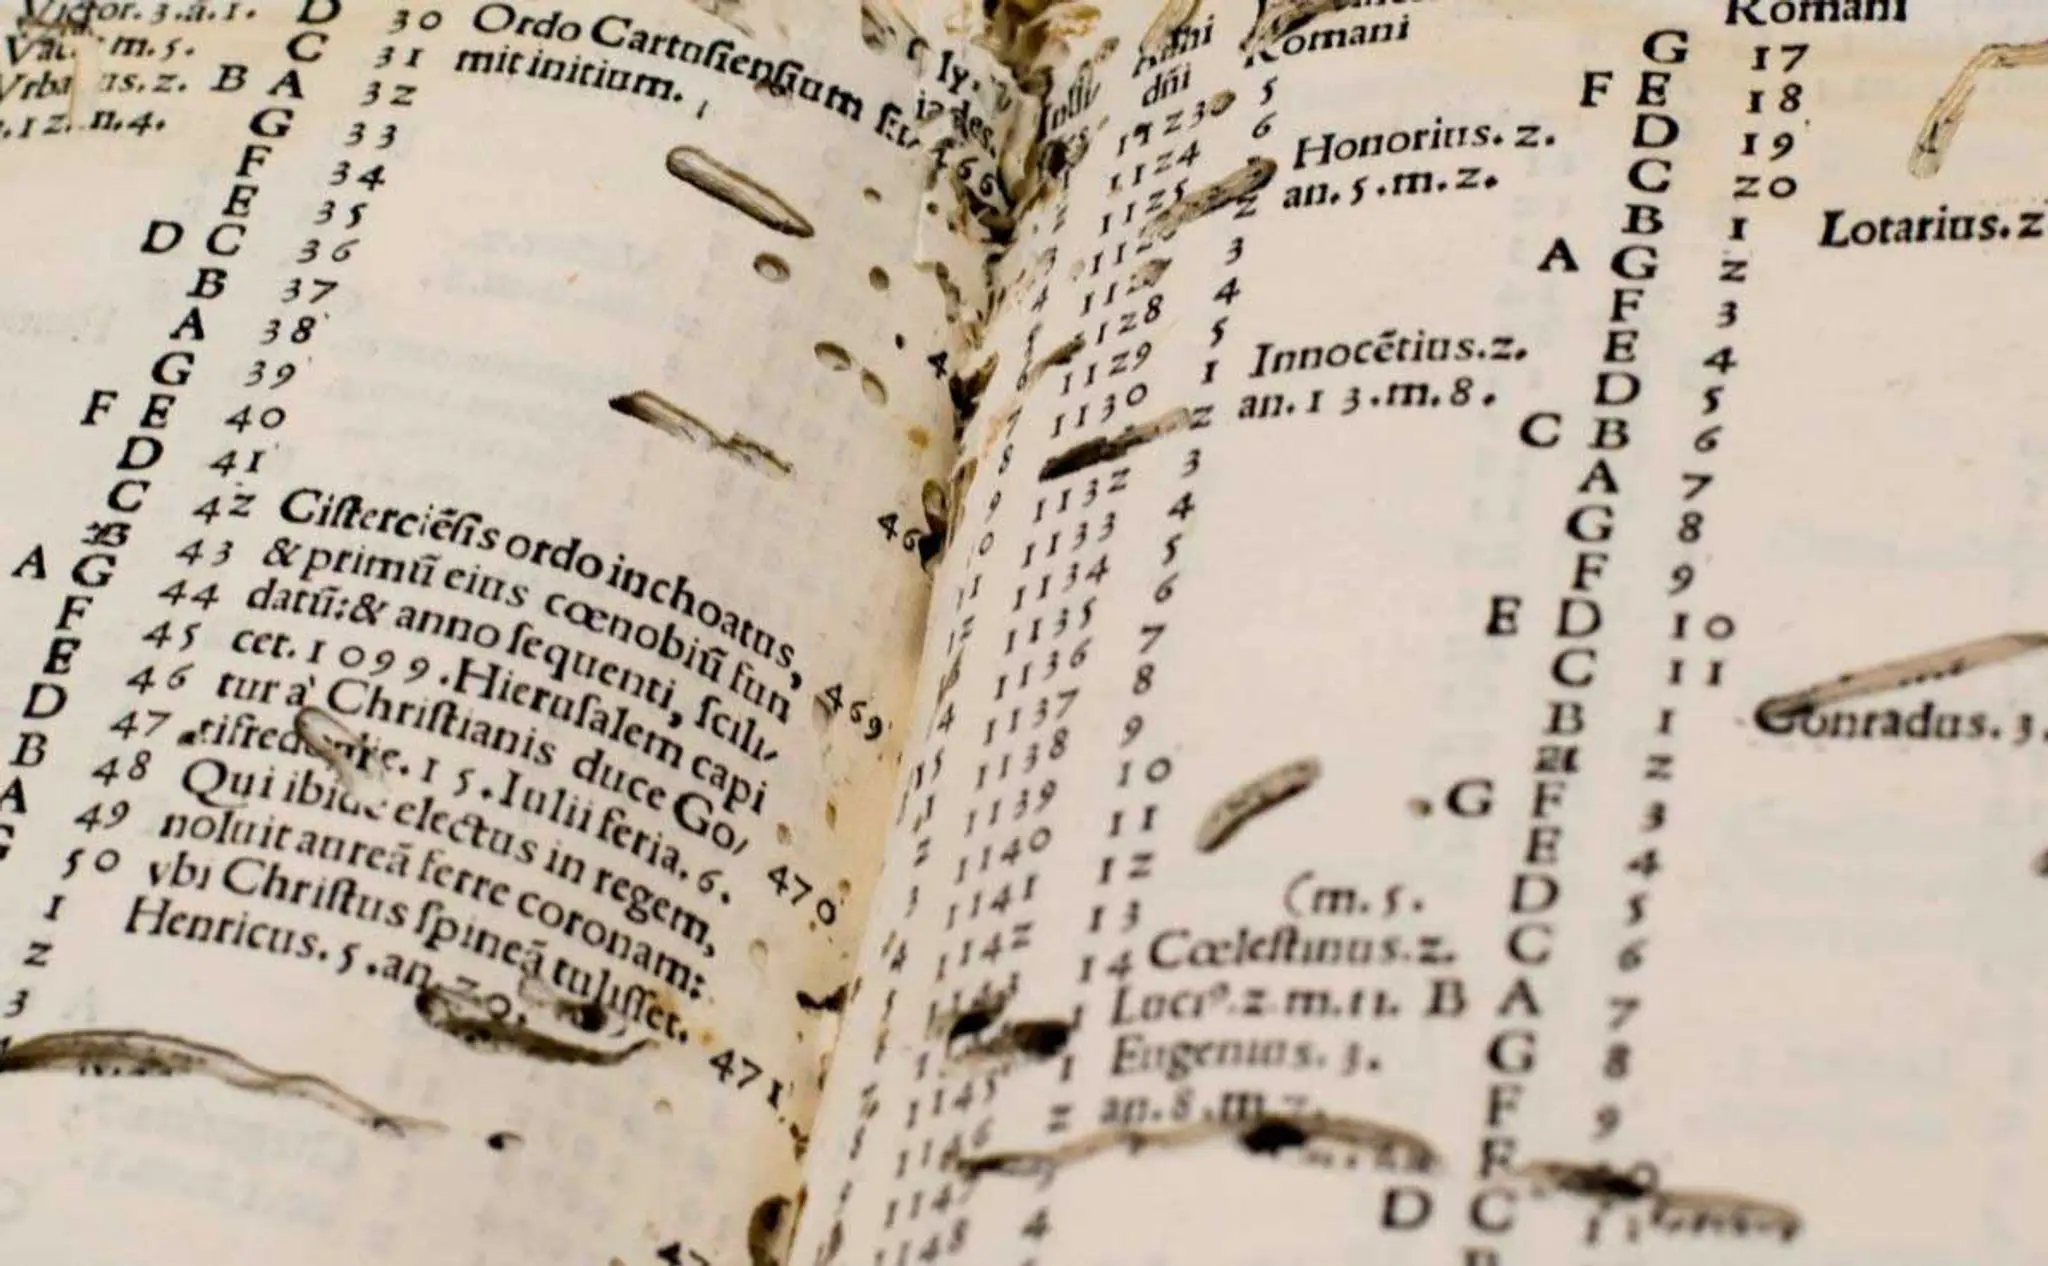 Victor. 3. a. 1. D 30 Ordo Cartuſienſium
m. 5. C 31 mit initium.
B A 32
n. 4. G 33
F 34
E 35
D C 36
B 37
A 38
G 39
F E 40
D 41
C 42 Ciſterciēſis ordo inchoatus,
B 43 & primū eius cœnobiū fun
A G 44 datū: & anno ſequenti, ſcili/
F 45 cet. 1099. Hieruſalem capi
E 46 tur à Chriſtianis duce Go/
D 47 15. Iulii feria. 6.
B 48 Qui ibidē electus in regem,
A 49 noluit aureā ferre coronam:
G 50 vbi Chriſtus ſpineā tuliſſet.
1 Henricus. 5. an. 20.
2
3
466
469
470
471
Anni Romani
dñi 5
1123 6 Honorius. 2.
1124 an. 5. m. 2.
1125 2
3
4
1128 5
1129 1 Innocētius. 2.
1130 2 an. 13. m. 8.
3
1132 4
1133 5
1134 6
1135 7
1136 8
1137 9
1138 10
1139 11
1140 12
1141 13 (m. 5.
1142 14 Cœleſtinus. 2.
1143 Luciꝰ. 2. m. 11.
1 Eugenius. 3.
1145 2 an. 8. m. 2.
1146
1147 4
1148
Romani
G 17
F E 18
D 19
C 20
B 1 Lotarius. 2
A G 2
F 3
E 4
D 5
C B 6
A 7
G 8
F 9
E D 10
C 11
B 1 Conradus. 3.
A 2
G F 3
E 4
D 5
C 6
B A 7
G 8
F 9
E 10
D C 11